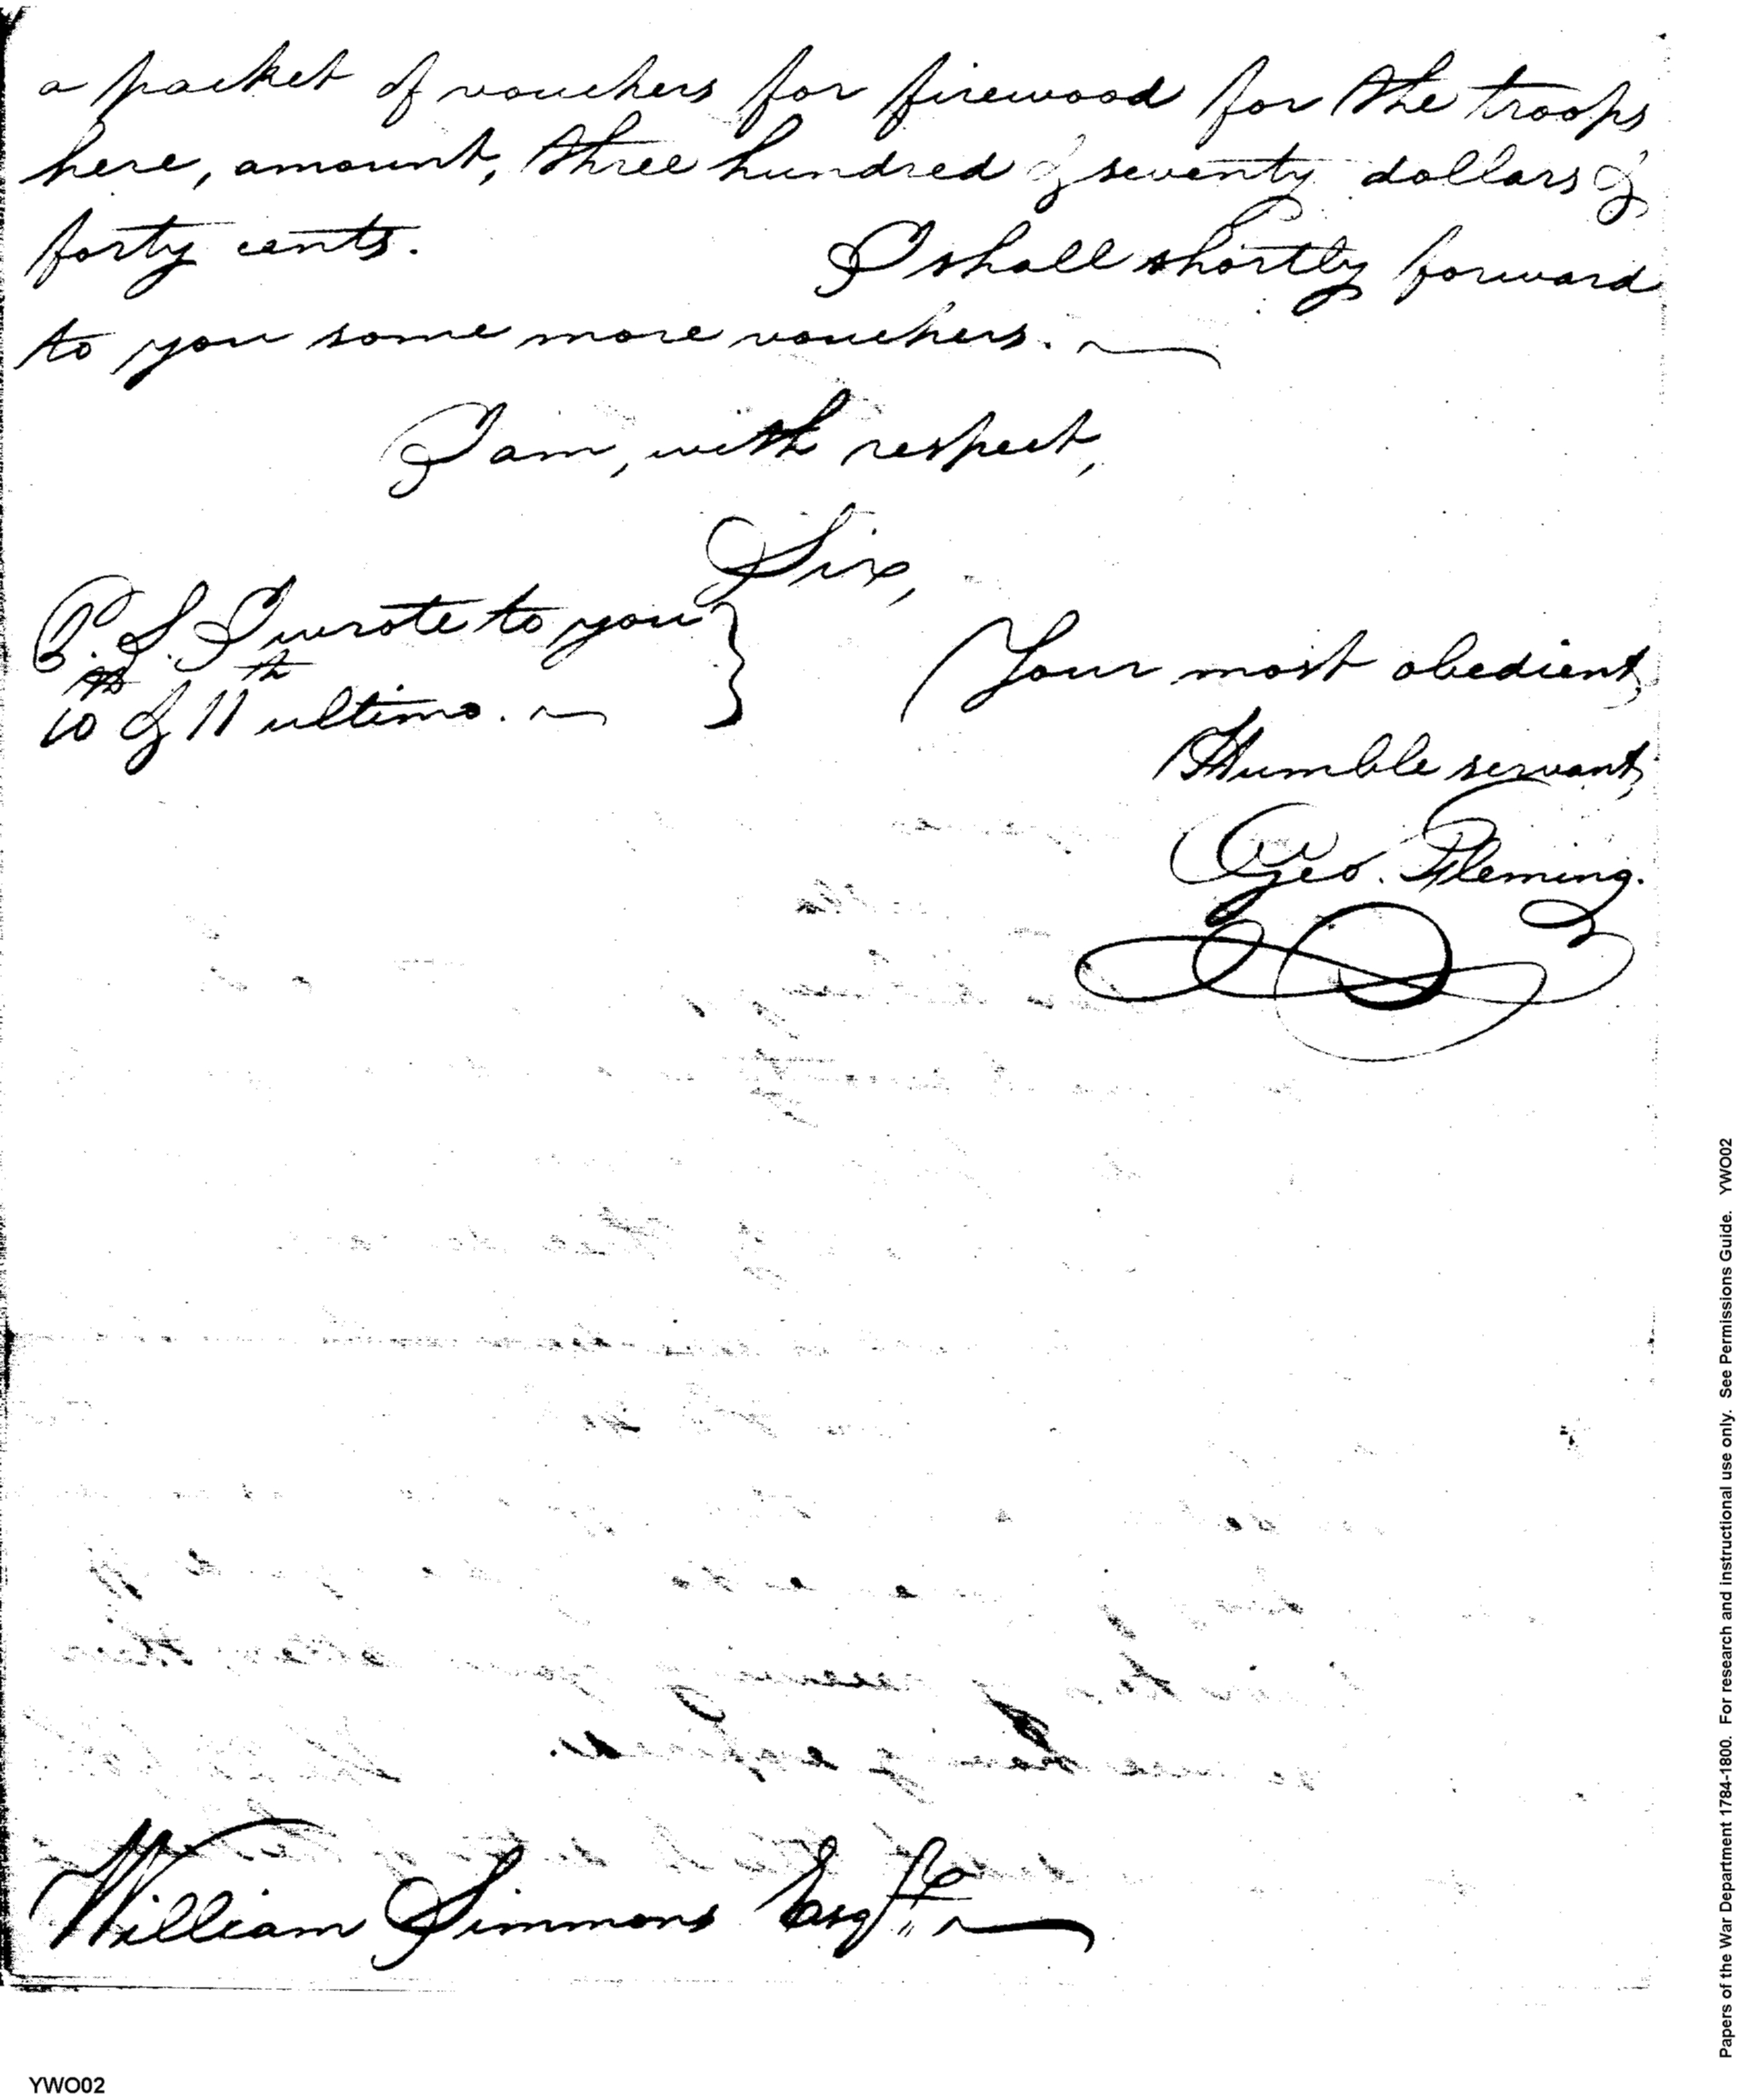 a packet of vouchers for firewood for the troops
here, amount, three hundred & seventy dollars &
forty cents. I shall shortly forward
to you some more vouchers.
I am, with respect,
Sir,
P.S. I wrote to you
10th & 11th ultimo.
Your most obedient,
Humble servant,
Geo. Fleming.
William Simmons Esqr.
Papers of the War Department 1784-1800. For research and instructional use only. See Permissions Guide. YWO02
YWO02